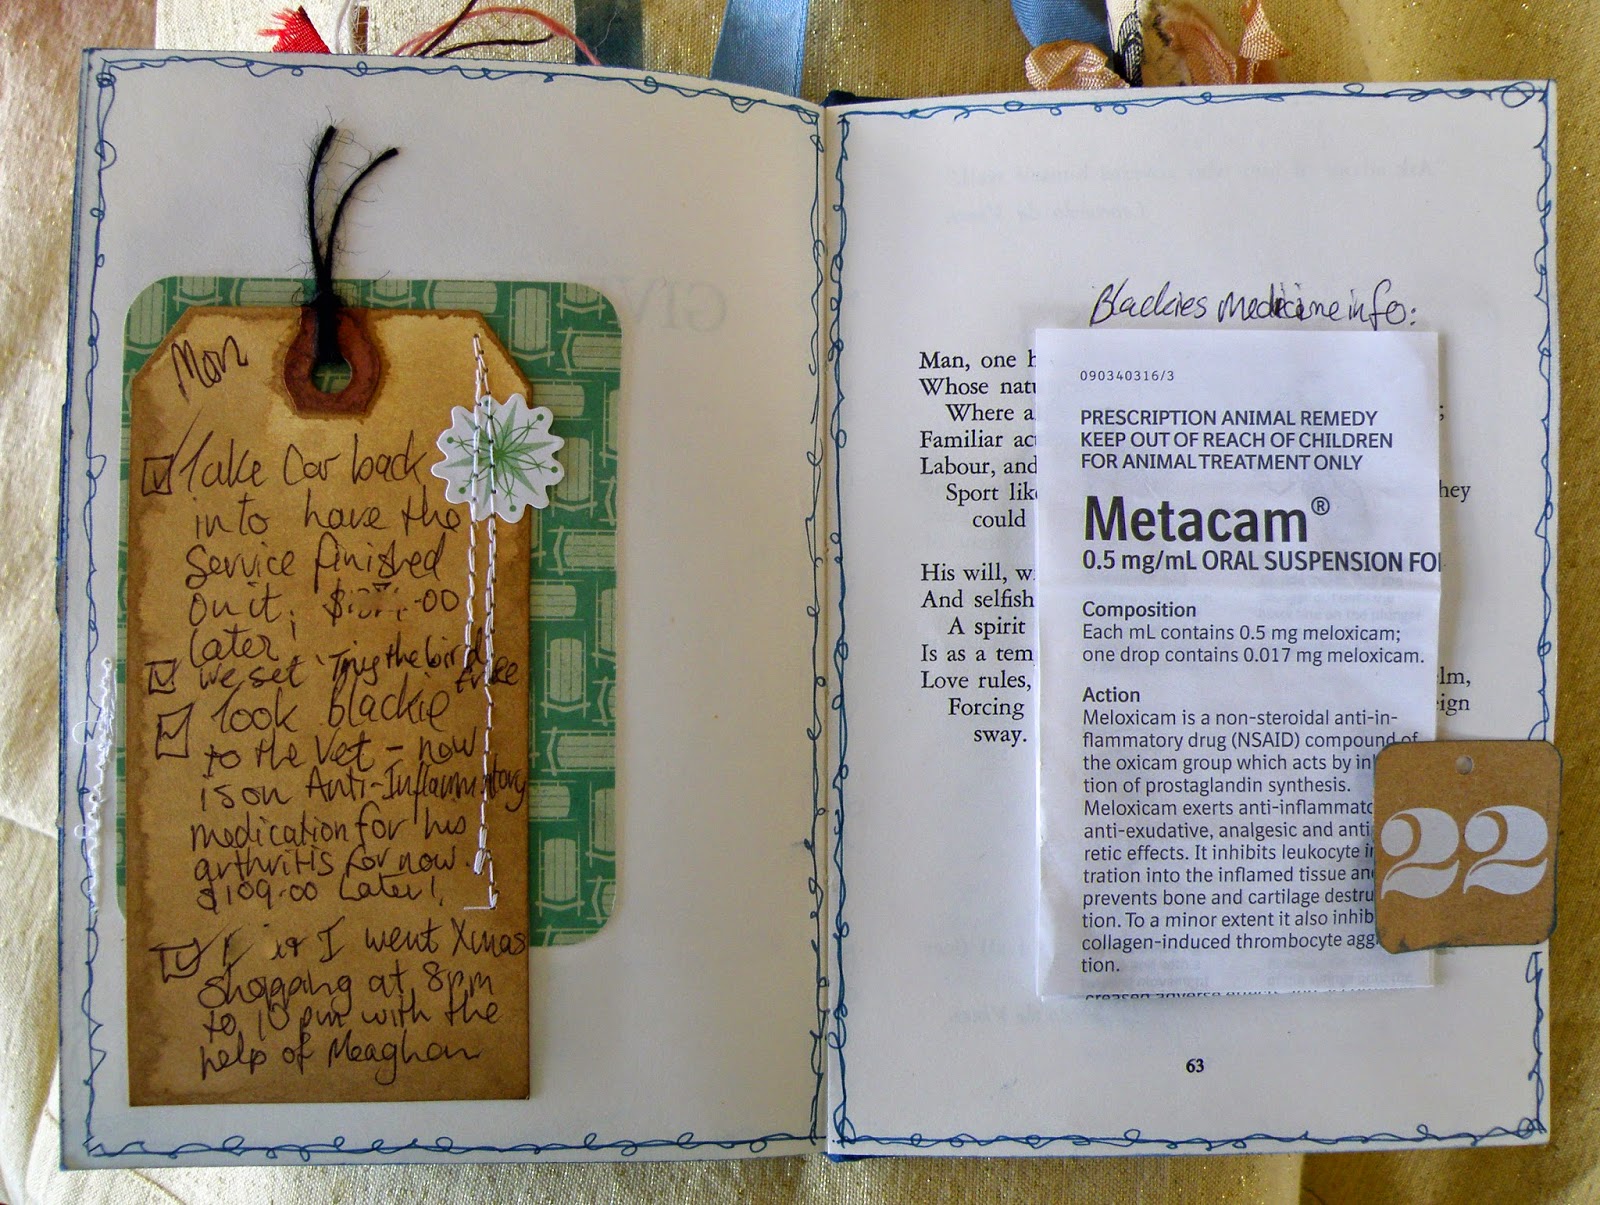 Mon
Take Car back
into have the
service finished
on it,
later!
we set 'Tiny the bird' free
Took blackie
to the Vet - now
is on Anti-Inflammatory
medication for his
arthritis for now.
$109.00 later!
I went Xmas
shopping at 8pm
to 10pm with the
help of Meaghan
Blackies Medicine info:
Man, one
Whose
Where a
Familiar
Labour, and
Sport
could
they
His will,
And selfish
A spirit
Is as a
Love rules,
Forcing
sway.
090340316/3
PRESCRIPTION ANIMAL REMEDY
KEEP OUT OF REACH OF CHILDREN
FOR ANIMAL TREATMENT ONLY
Metacam®
0.5 mg/mL ORAL SUSPENSION
Composition
Each mL contains 0.5 mg meloxicam;
one drop contains 0.017 mg meloxicam.
Action
Meloxicam is a non-steroidal anti-in-
flammatory drug (NSAID) compound of
the oxicam group which acts by
tion of prostaglandin synthesis.
Meloxicam exerts
anti-exudative, analgesic and
retic effects. It inhibits leukocyte
tration into the inflamed tissue and
prevents bone and cartilage
tion. To a minor extent it also
collagen-induced thrombocyte
tion.
22
63